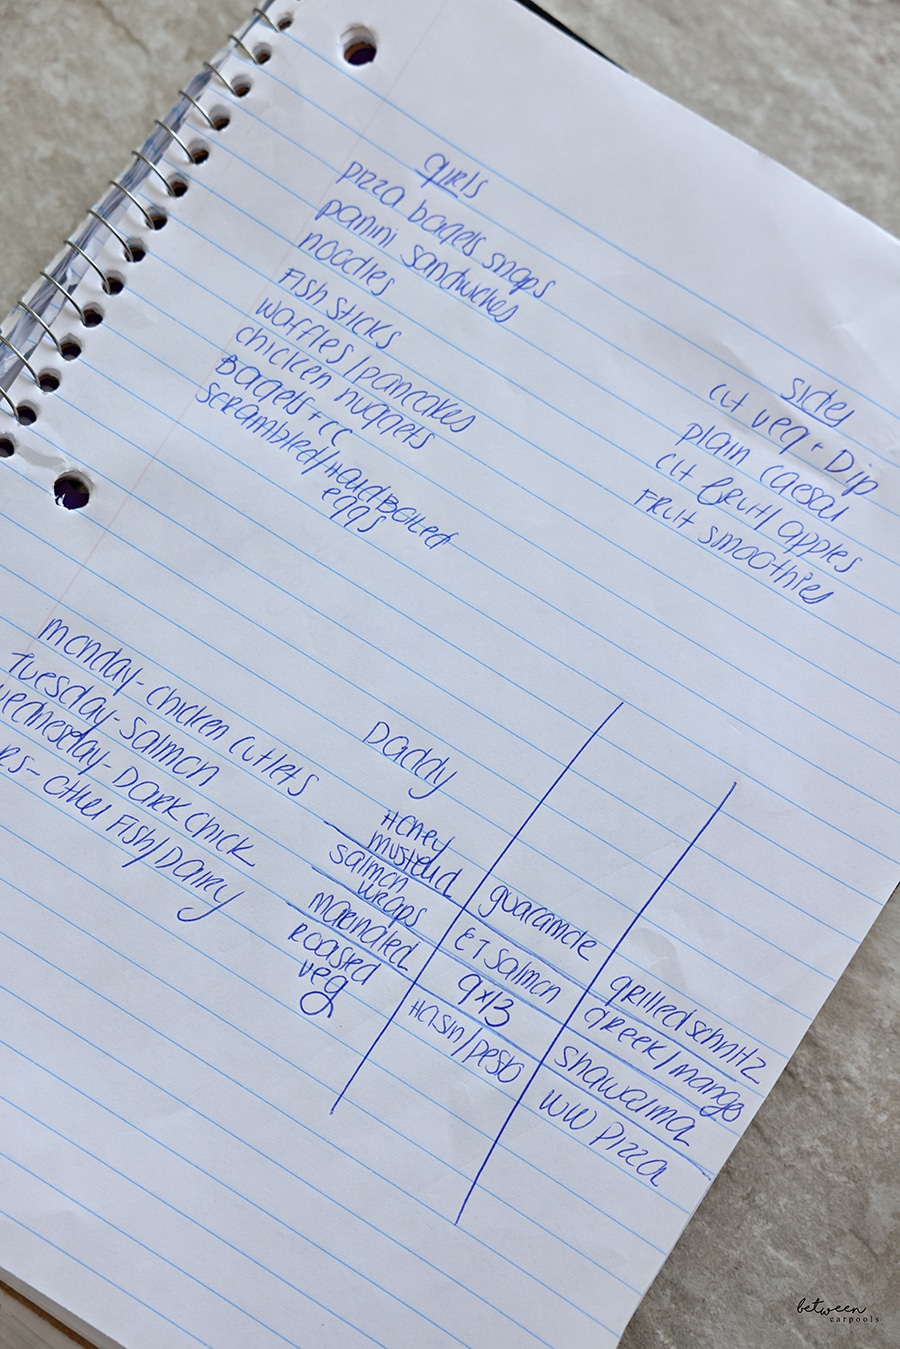 girls
pizza bagels snaps
panini sandwiches
noodles
Fish sticks
waffles/pancakes
chicken nuggets
Bagels + cc
scrambled/Hard Boiled
eggs
sides
cut veg + Dip
plain caesar
cut fruit/apples
Fruit smoothies
monday- chicken cutlets
Tuesday- salmon
wednesday- DARK chick
RS- other Fish/Dairy
Daddy
Honey
mustard
salmon
wraps
marinated
roasted
veg
guaramole
ET salmon
9x13
Hoisin/pesto
grilled schnitz
Greek/mango
shawarma
WW pizza
between
carpools